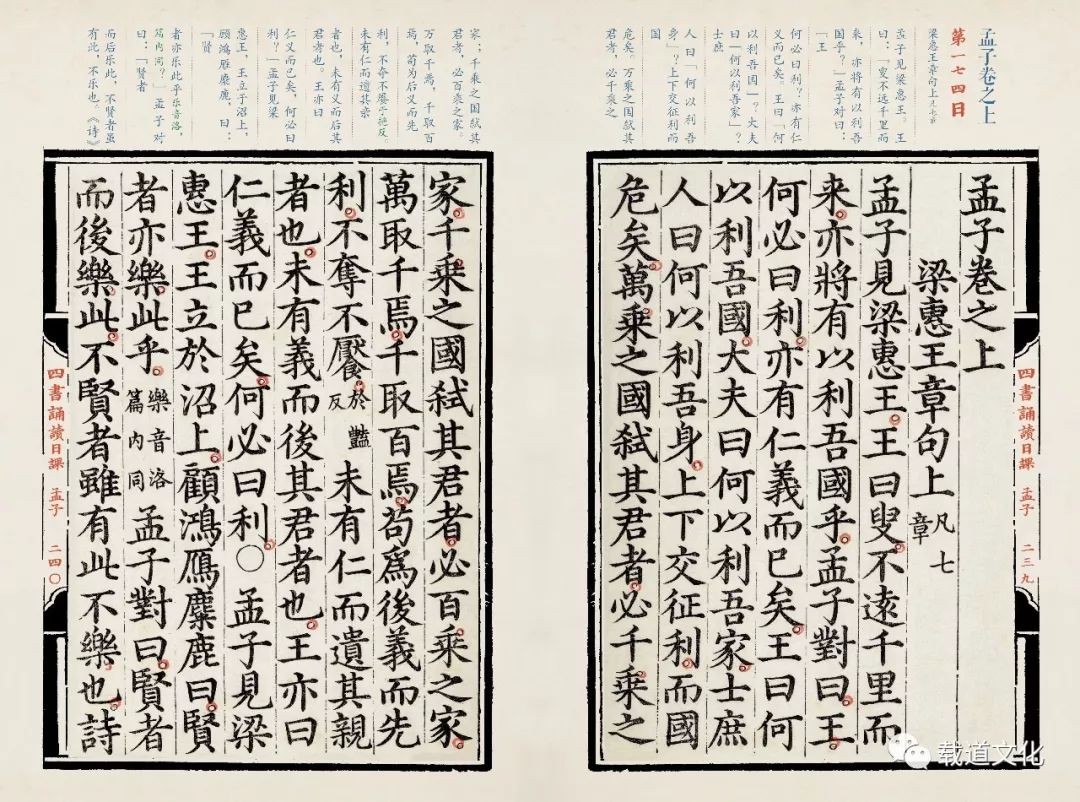 孟子卷之上
第一七四日
梁惠王章句上凡七章
孟子见梁惠王。王
曰：「叟不远千里而
来，亦将有以利吾
国乎？」孟子对曰：
「王
何必曰利？亦有仁
义而已矣。王曰「何
以利吾国」？大夫
曰「何以利吾家」？
士庶
人曰「何以利吾
身」？上下交征利而
国
危矣。万乘之国弑其
君者，必千乘之
孟子卷之上
梁惠王章句上凡七章
孟子見梁惠王王曰叟不遠千里而
来亦將有以利吾國乎孟子對曰王
何必曰利亦有仁義而已矣王曰何
以利吾國大夫曰何以利吾家士庶
人曰何以利吾身上下交征利而國
危矣萬乘之國弑其君者必千乘之
四書誦讀日課 孟子 二三九
家；千乘之国弑其
君者，必百乘之家。
万取千焉，千取百
焉，苟为后义而先
利，不夺不餍于艳反
未有仁而遗其亲
者也，未有义而后其
君者也。王亦曰
仁义而已矣，何必曰
利？」孟子见梁
惠王，王立于沼上，
顾鸿雁麋鹿，曰：
「贤
者亦乐此乎乐音洛，
篇内同？」孟子对
曰：「贤者
而后乐此，不贤者虽
有此，不乐也。《诗》
家千乘之國弑其君者必百乘之家
萬取千焉千取百焉苟爲後義而先
利不奪不饜於豔反未有仁而遺其親
者也未有義而後其君者也王亦曰
仁義而已矣何必曰利○孟子見梁
惠王王立於沼上顧鴻鴈麋鹿曰賢
者亦樂此乎樂音洛篇内同孟子對曰賢者
而後樂此不賢者雖有此不樂也詩
四書誦讀日課 孟子 二四〇
载道文化